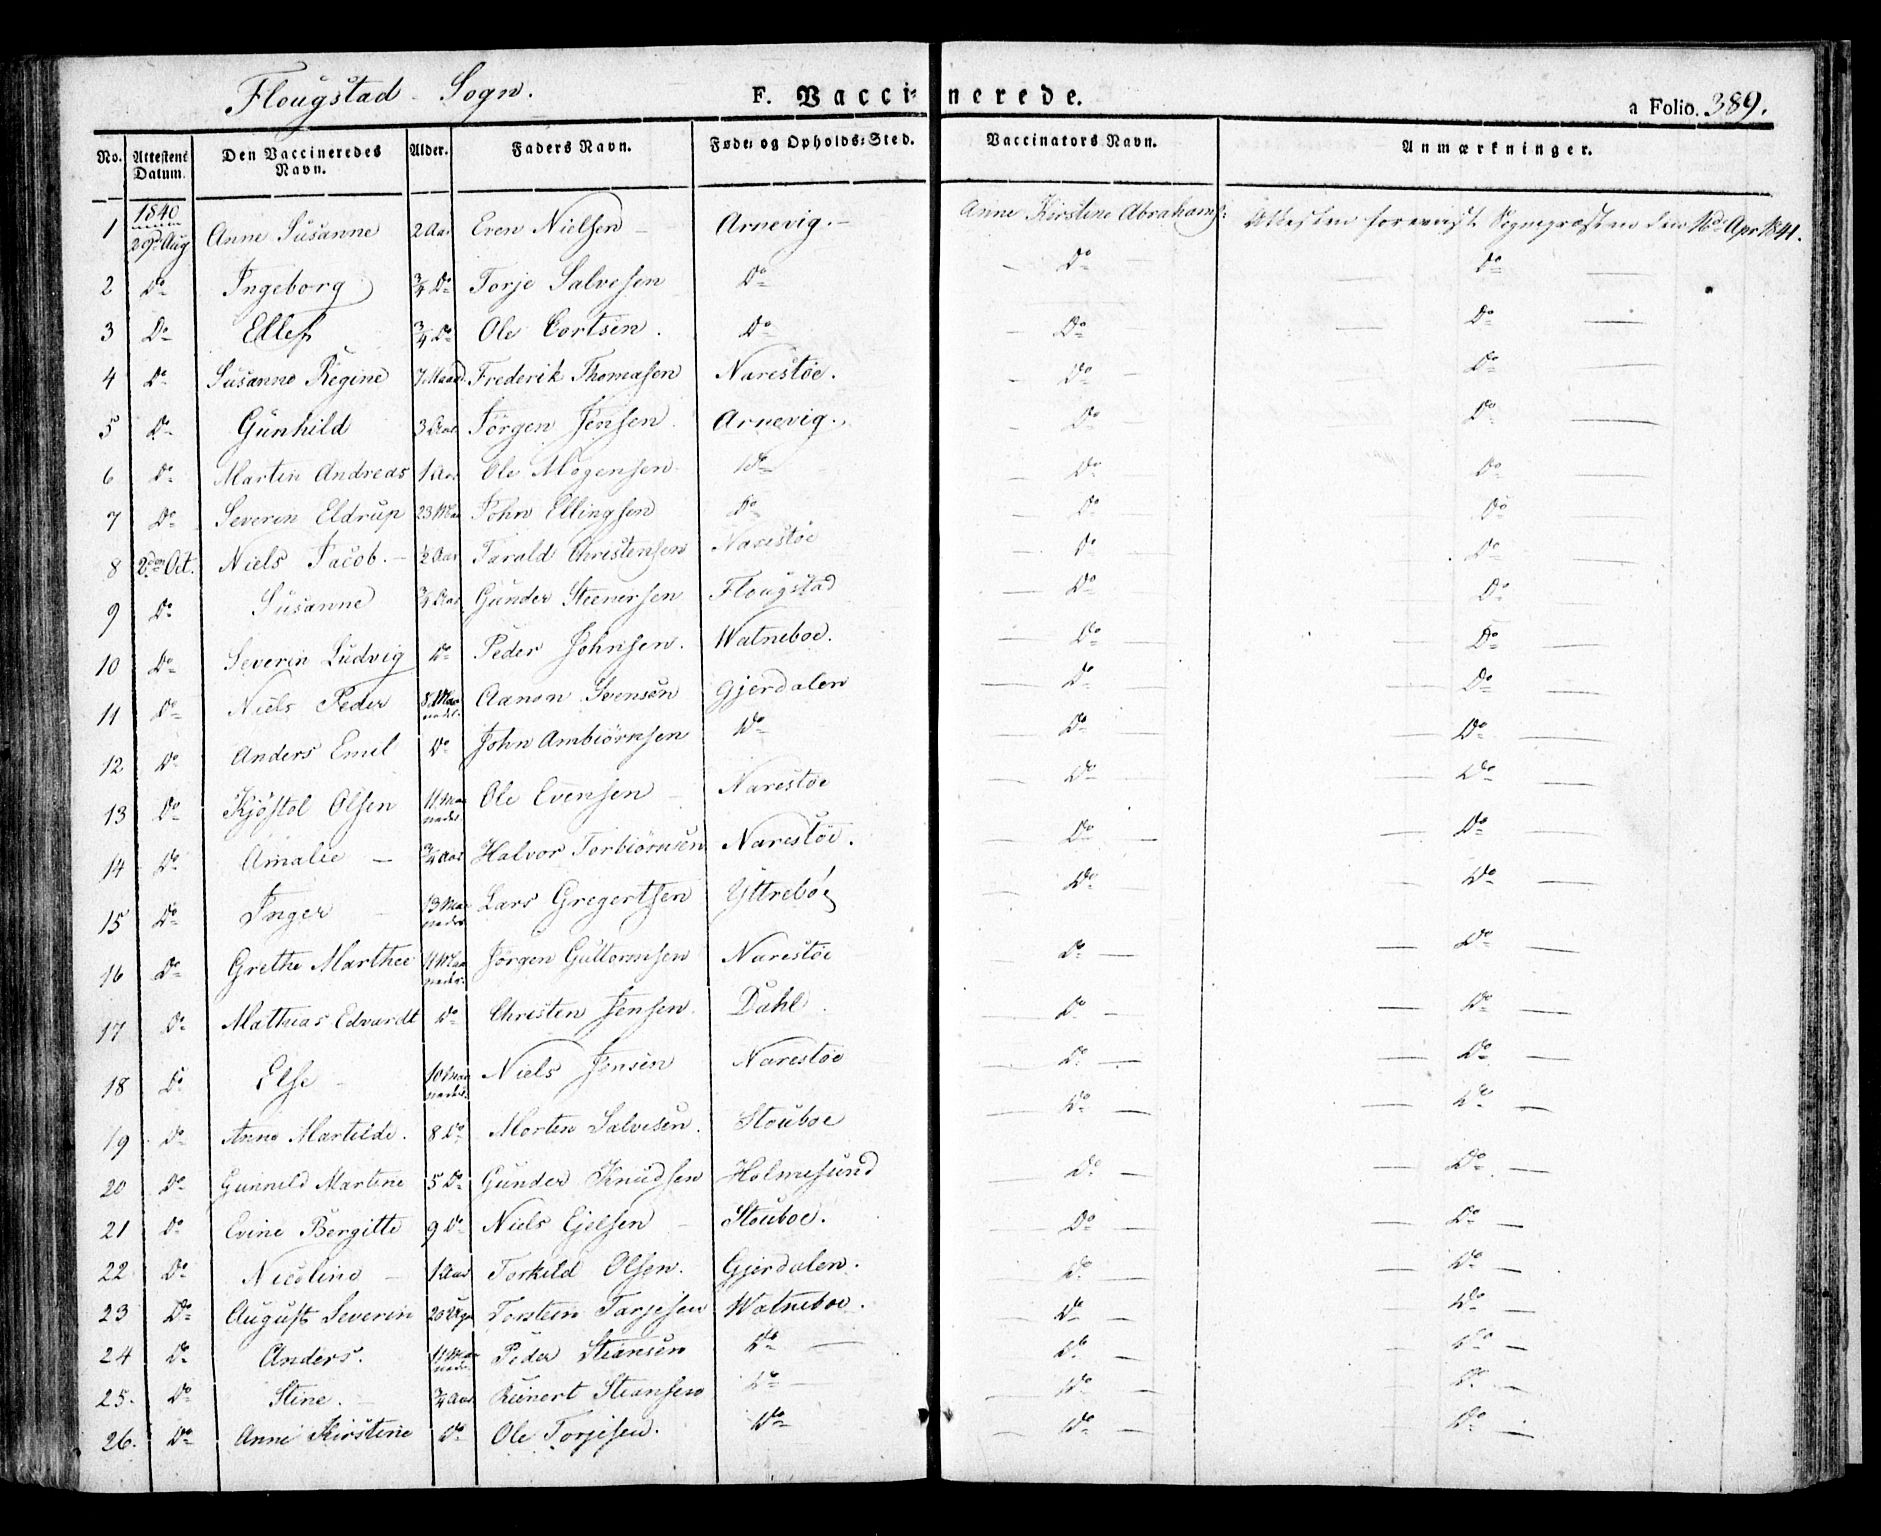 Flougstad Sogn. F. Vaccinerede. a Folio. 389.
No. Attestens Datum. Den Vaccineredes Navn. Alder. Faders Navn. Føde- og Opholds-Sted. Vaccinators Navn. Anmærkninger.
1840
1 29de Aug Anne Susanne 2 Aar Even Nielsen Arnevig. Anne Kirstine Abrahams: Attesten foreviist Sognepræsten den 16de Apr 1841.
2 Do Ingeborg 3/4 Do Torje Salvesen Do Do Do
3 Do Ellef 3/4 Do Ole Do Do Do
4 Do Susanne Regine 7 Maan Frederik Thomasen Narestöe. Do Do
5 Do Gunhild 3 Aar Jörgen Jensen Arnevig. Do Do
6 Do Martin Andreas 1 Aar Ole Mogensen Do Do Do
7 Do Severin Eldrup 23 Maa John Ellingsen Do Do Do
8 2den Oct. Niels Jacob. 1/2 Aar Tarald Christensen Narestöe Do Do
9 Do Susanne 3/4 Aar Gunder Steenersen Flougstad Do Do
10 Do Severin Ludvig Do Peder Johnsen. Watneboe. Do Do
11 Do Niels Peder 8 Maaneder Aanon Svensen Gjerdalen Do Do
12 Do Anders Emil Do John Ambiörnsen Do Do Do
13 Do Kjöstol Olsen 11 Maaneder Ole Evensen Narestöe Do Do
14 Do Amalie 3/4 Aar Halvor Torbiörnsen Narestöe. Do Do
15 Do Inger 13 Maaneder Lars Gregertsen Yttreböe Do Do
16 Do Grethe Marthee 11 Maaneder Jörgen Guttormsen Narestöe Do Do
17 Do Mathias Edvardt Do Christen Jensen. Dahl Do Do
18 Do Else 10 Maaneder Niels Jensen Narestöe Do Do
19 Do Anne Martilde. 8 Do Morten Salvesen. Stouboe Do Do
20 Do Gunnild Martine 5 Do Gunder Knudsen Holmesund Do Do
21 Do Evine Bergitte 9 Do Niels Ejelsen Stouboe. Do Do
22 Do Nicoline 1 Aar Torkild Olsen. Gjerdalen. Do Do
23 Do August Severin 20 Uger Torsten Tarjesen Watneboe. Do Do
24 Do Anders. 11 Maaneder Peder Steansen Do Do Do
25. Do Stine. 3/4 Aar Reinert Steansen Do Do Do
26. Do Anne Kirstine Do Ole Torjesen. Do Do Do